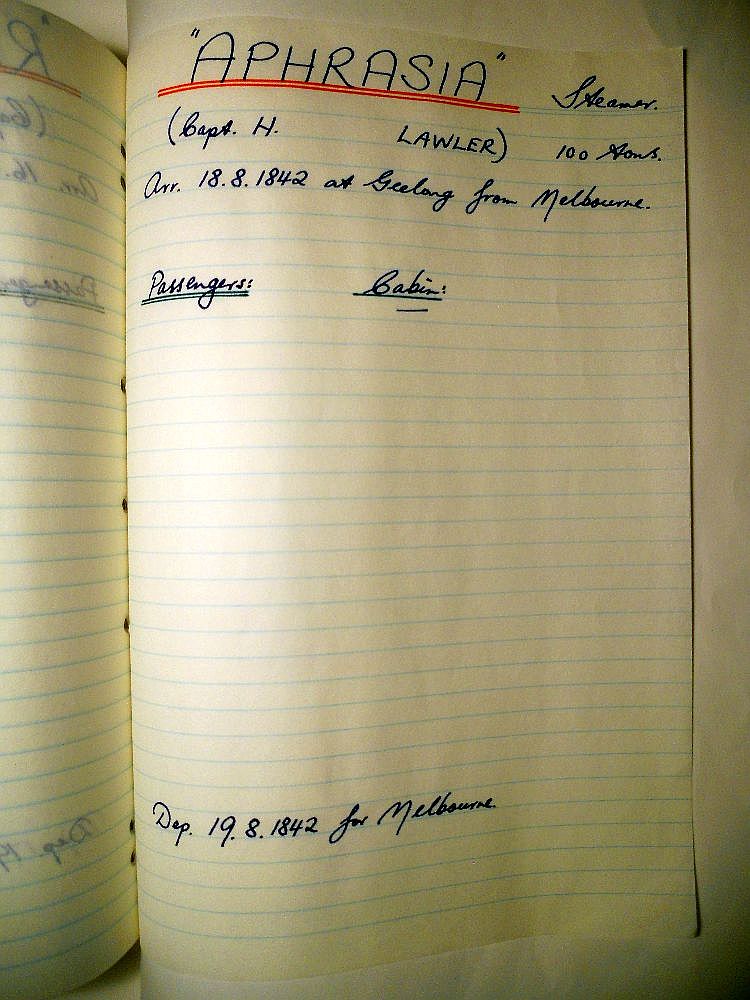 "APHRASIA" Steamer.
(Capt. H. LAWLER) 100 tons.
Arr. 18.8.1842 at Geelong from Melbourne.
Passengers: Cabin:
Dep. 19.8.1842 for Melbourne.